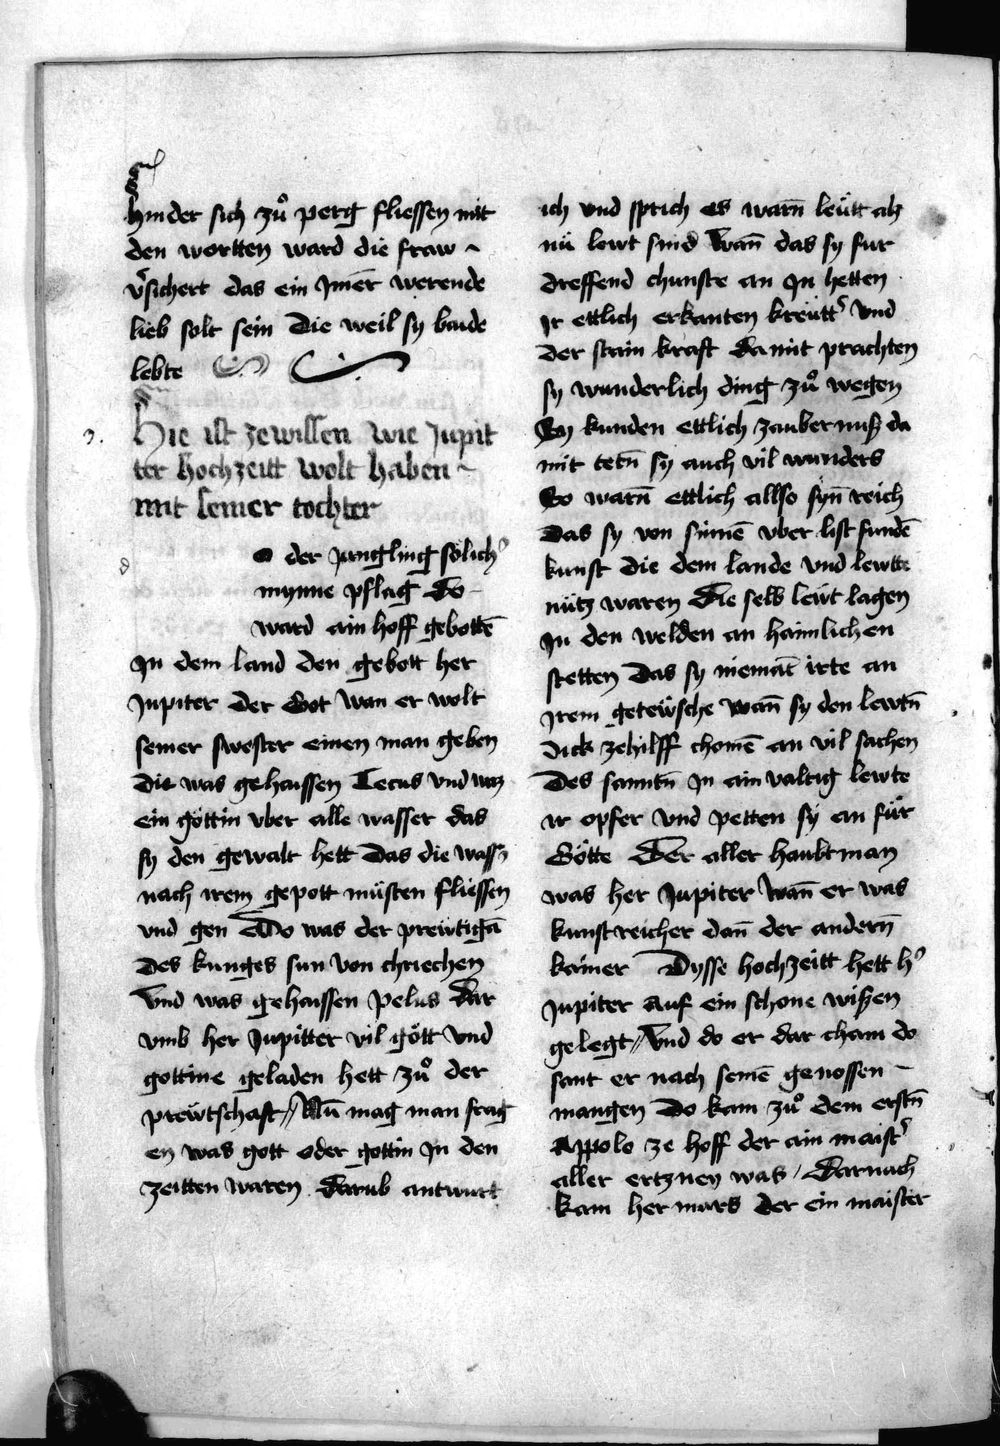 hinder sich zuͦ perg fliessen mit
den wortten ward die fraw ~
v͛sichert das ein Jmer̄ werende
lieb solt sein Die weil sy baide
lebte
9.
Hie ist zewissen wie Jupit
ter hochzeitt wolt haben ~
mit seiner tochter
d
o der Jungling sölich͛
mynne pflag Do
ward ain hoff gebottē
Jn dem land den gebott her
Jupiter der Got Wan er wolt
seiner swester einen man geben
die was gehaissen Tecus vnd waz
ein göttin vber alle wasser das
sy den gewalt hett Das die wass͛
nach irem gepott müsten fliessen
vnd gen Do was der prewtigā
Des kunges sun von chriechen
Vnd was gehaissen pelus dar
vmb her Jupitter vil gött Vnd
gottine geladen hett zuͦ der
prewtschaft // Nū mag man frag
en was gott oder gottin Jn den
zeitten waren Darūb antwurt
ich vnd sprich es warn̄ leütt alz
nü lewt sind Wan̄ das sy fur
dreffend chunste an Jn hetten
Jr ettlich erkanten kreütt͛ Vnd
der stain kraft Da mit prachten
sy wunderlich ding zuͦ wegen
Sy kunden ettlich zaubernuß da
mit tetn̄ sy auch vil wunders
So warn̄ ettlich allso syn̄ reich
Das sy von sinnē vber list fundē
kunst die dem lande vnd lewtte
nütz waren Die selb lewt lagen
Jn den welden an haimlichen
stetten Das sy niemāt irte an
Jrem getewsche Wan̄ sy den lewtn̄
Dick zehilff chomē an vil sachen
Des santn̄ Jn ain valtig lewte
ir opfer vnd petten sy an für
Götte Der aller haubtman
was her Jupiter Wan̄ er was
kunstreicher dan̄ der andern̄
kainer Dysse hochzeitt hett h͛
Jupiter auf ein schone wißen
gelegt // Vnd do er dar cham do
sant er nach seinē genossen ~
mangen Do kam zuͦ dem erstn̄
Appolo ze hoff der ain maist͛
aller ertzney was / Darnach
kam her mars der ein maister